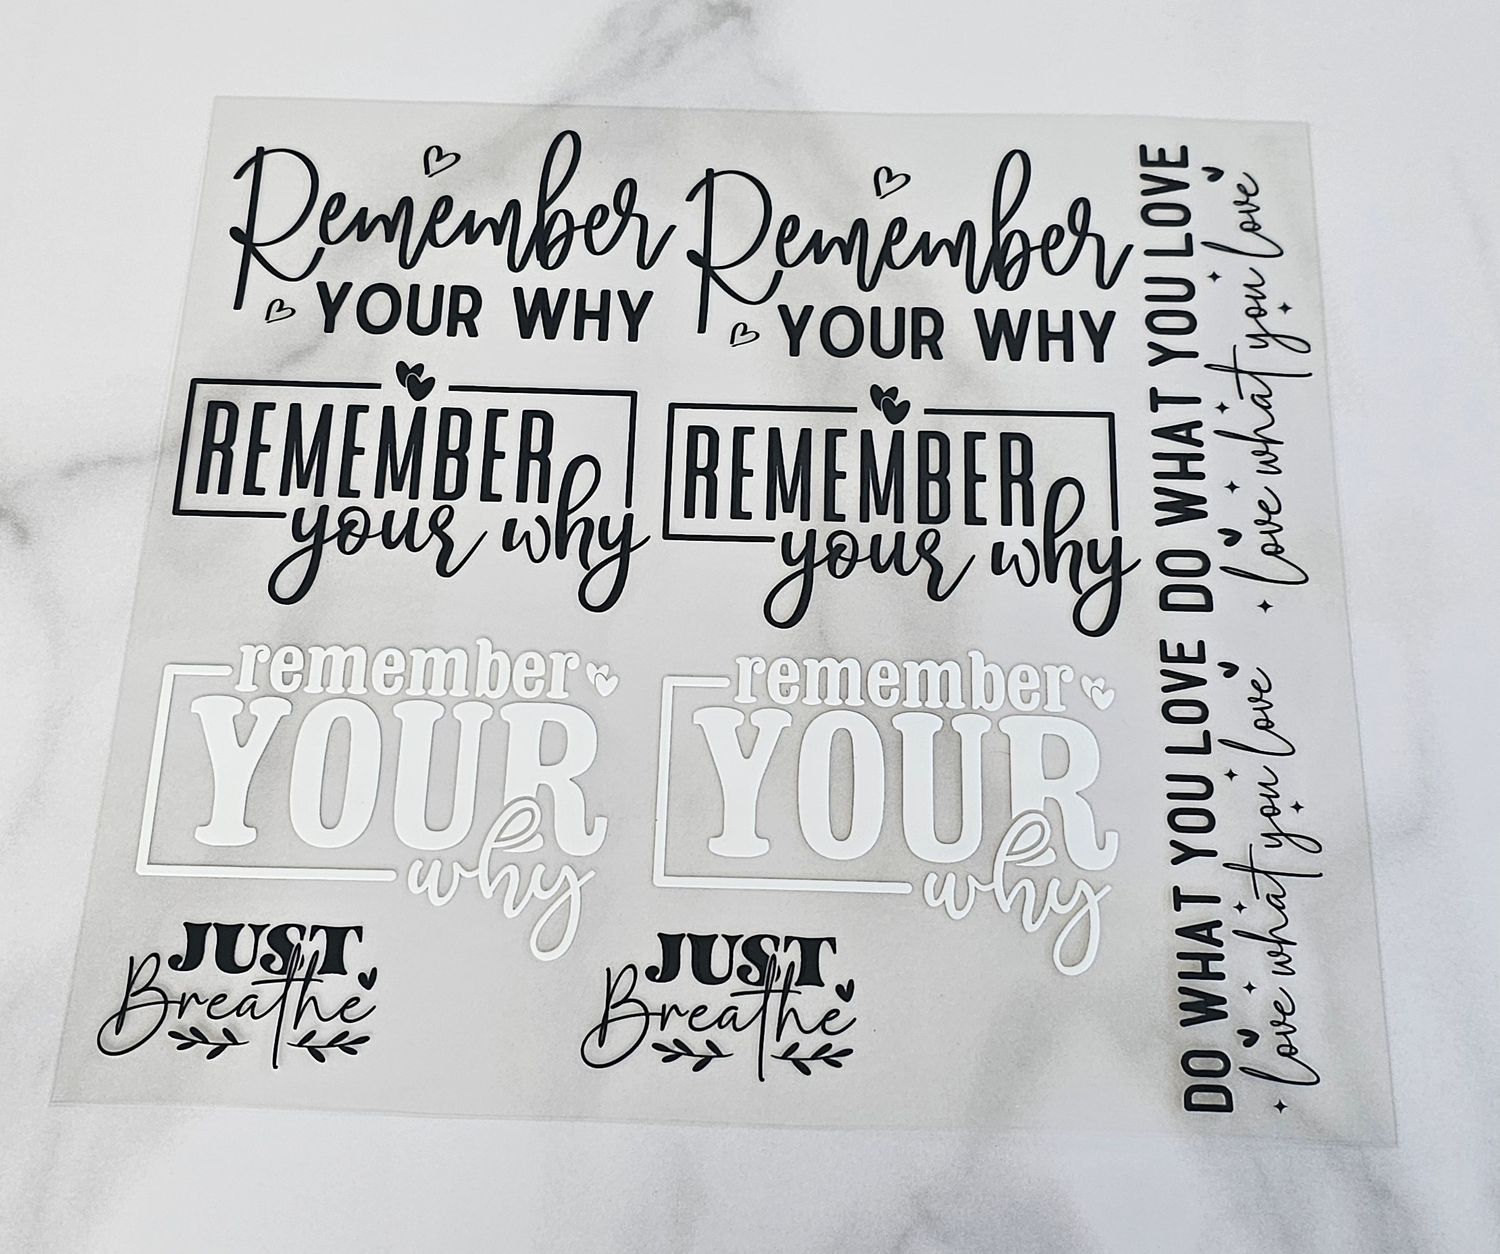 Remember
YOUR WHY
Remember
YOUR WHY
REMEMBER
your why
REMEMBER
your why
remember
YOUR
why
remember
YOUR
why
JUST
Breathe
JUST
Breathe
DO WHAT YOU LOVE DO WHAT YOU LOVE
love what you love love what you love